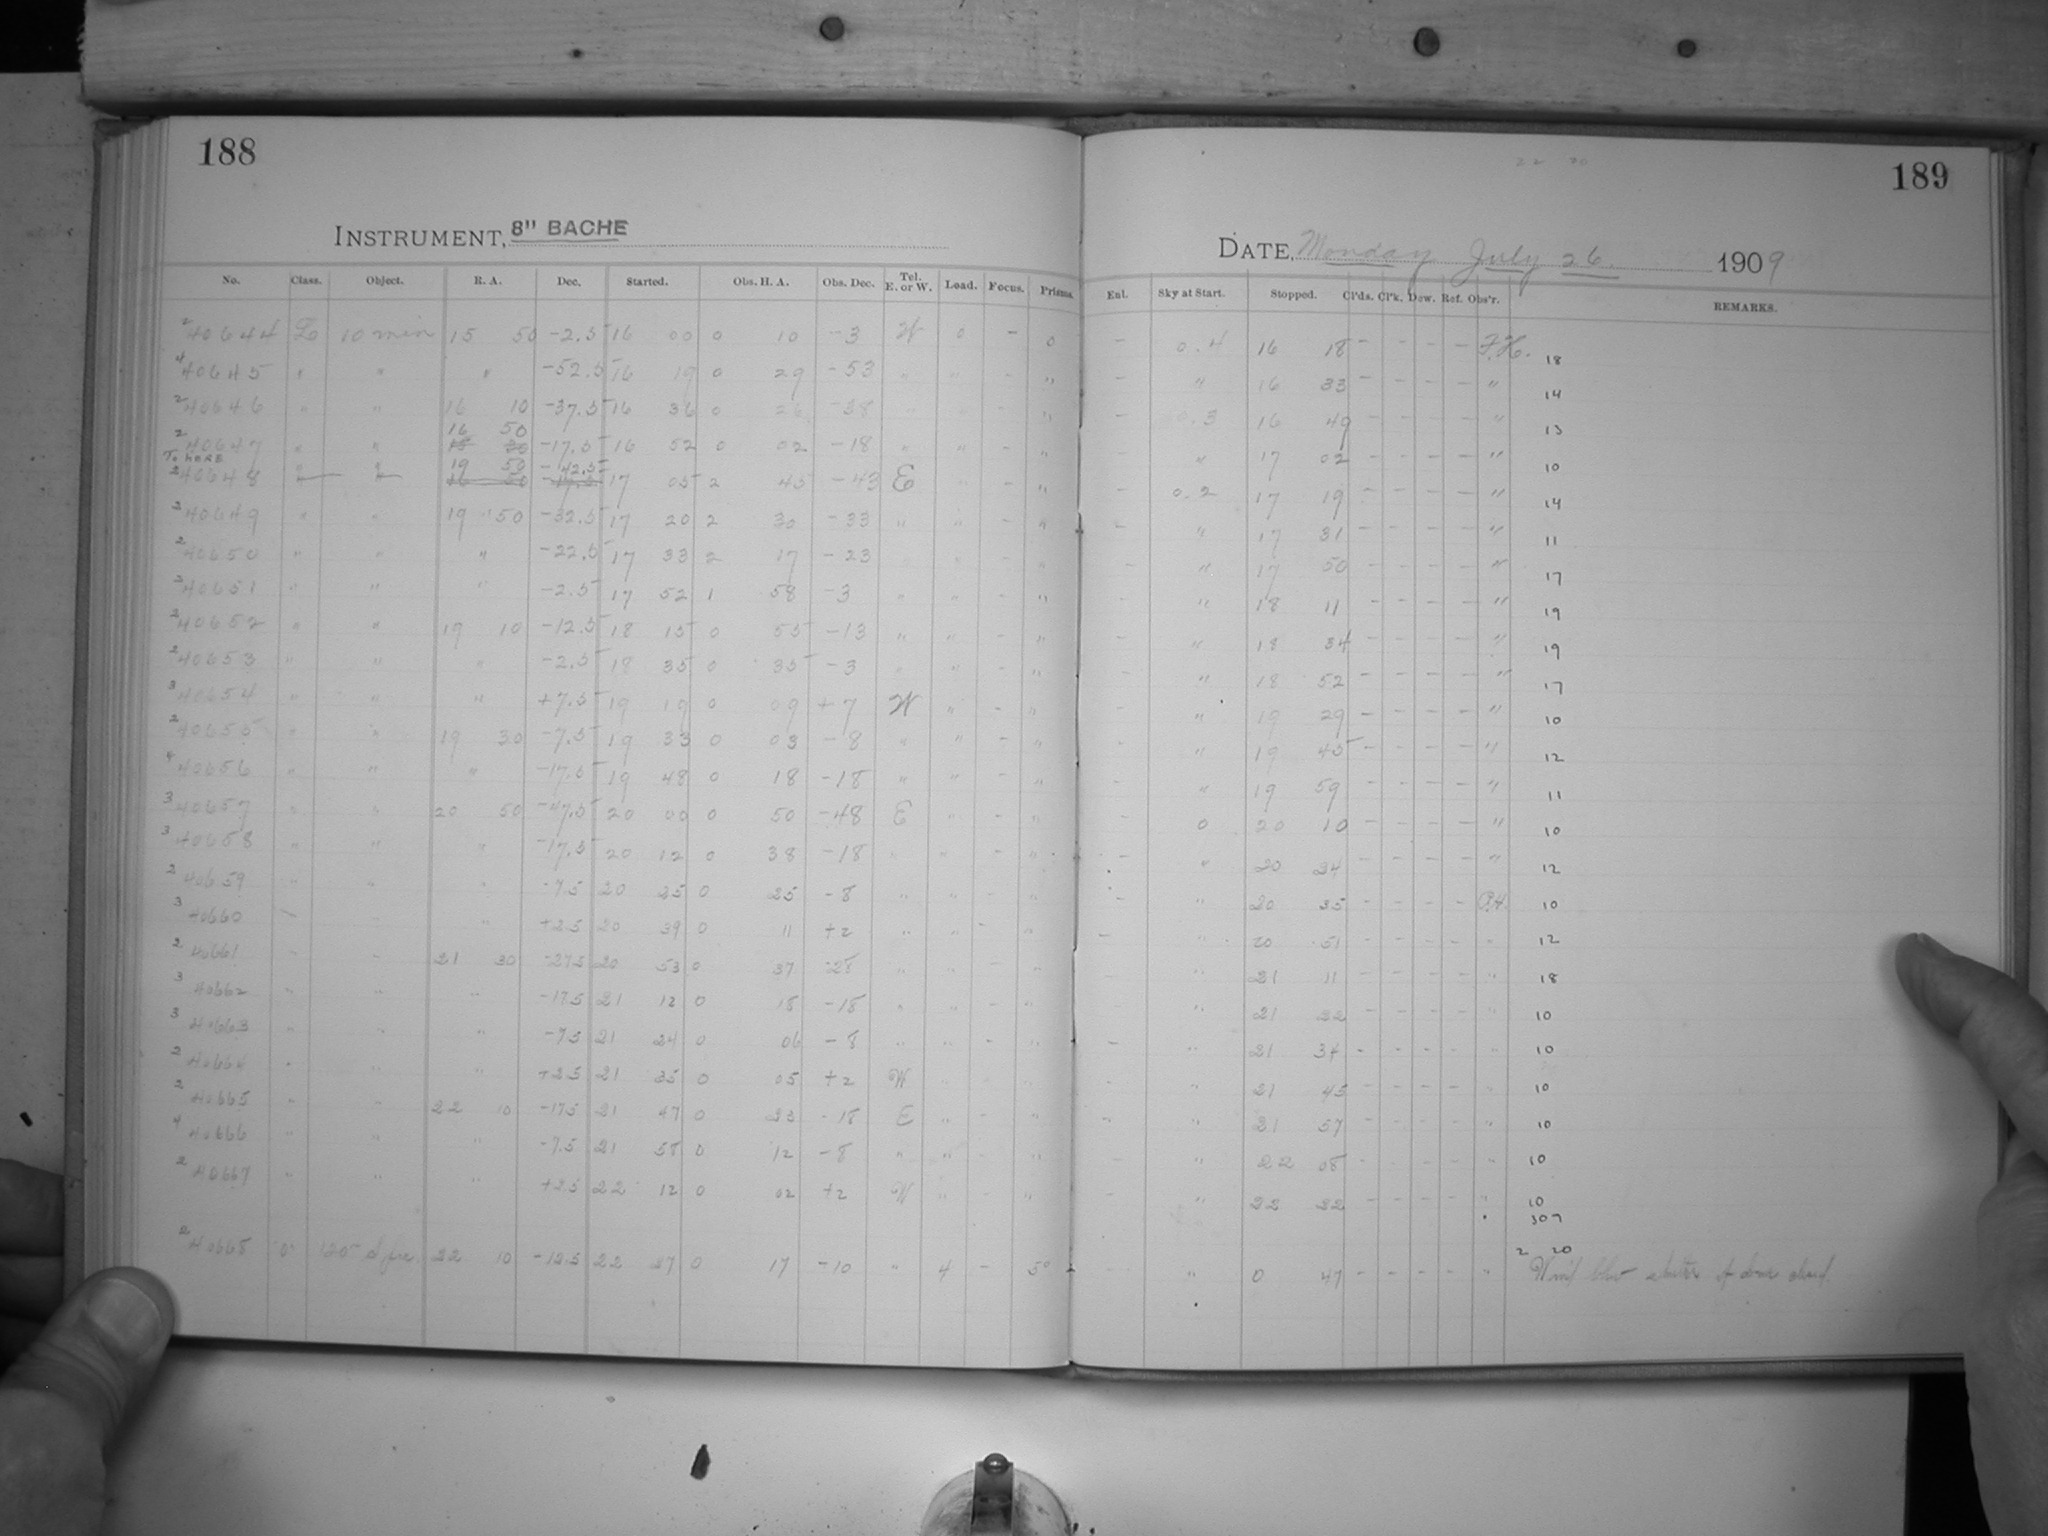 188
INSTRUMENT, 8" BACHE
No. Class. Object. R. A. Dec. Started. Obs. H. A. Obs. Dec. Tel. E. or W. Load. Focus. Prisms.
2 40644 10 min 15 50 -2.5 16 00 0 10 -3 W 0 - 0
4 40645 " " " -52.5 16 19 0 29 -53 " " - "
2 40646 " " 16 10 -37.5 16 36 0 26 -38 " " - "
16 50
2 40647 " " 15 30 -17.5 16 52 0 02 -18 " " - "
To HERE 19 50 -42.5
2 40648 " " 16 50 -17.5 17 05 2 45 -43 E " - "
2 40649 " " 19 50 -32.5 17 20 2 30 -33 " " - "
2 40650 " " " -22.5 17 33 2 17 -23 " " - "
3 40651 " " " -2.5 17 52 1 58 -3 " " - "
2 40652 " " 19 10 -12.5 18 15 0 55 -13 " " - "
2 40653 " " " -2.5 18 35 0 35 -3 " " - "
3 40654 " " " +7.5 19 19 0 09 +7 W " - "
2 40655 " " 19 30 -7.5 19 33 0 03 -8 " " - "
4 40656 " " " -17.5 19 48 0 18 -18 " " - "
3 40657 " " 20 50 -47.5 20 00 0 50 -48 E " - "
3 40658 " " " -17.5 20 12 0 38 -18 " " - "
2 40659 " " " -7.5 20 25 0 25 -8 " " - "
3 40660 " " " +2.5 20 39 0 11 +2 " " - "
2 40661 " " 21 30 -27.5 20 53 0 37 -28 " " - "
3 40662 " " " -17.5 21 12 0 18 -18 " " - "
3 40663 " " " -7.5 21 24 0 06 -8 " " - "
2 40664 " " " +2.5 21 35 0 05 +2 W " - "
2 40665 " " 22 10 -17.5 21 47 0 23 -18 E " - "
4 40666 " " " -7.5 21 58 0 12 -8 " " - "
2 40667 " " " +2.5 22 12 0 02 +2 W " - "
2 40668 22 10 -12.5 22 27 0 17 -10 " 4 - 50
22 20
189
DATE, Monday July 26. 1909
Enl. Sky at Start. Stopped. Cl'ds. Cl'k. Dew. Ref. Obs'r. REMARKS.
- 0.4 16 18 - - - - F.H. 18
- " 16 33 - - - - " 14
- 0.3 16 49 - - - - " 13
- " 17 02 - - - - " 10
- 0.2 17 19 - - - - " 14
- " 17 31 - - - - " 11
- " 17 50 - - - - " 17
- " 18 11 - - - - " 19
- " 18 34 - - - - " 19
- " 18 52 - - - - " 17
- " 19 29 - - - - " 10
- " 19 45 - - - - " 12
- " 19 59 - - - - " 11
- 0 20 10 - - - - " 10
- " 20 24 - - - - " 12
- " 20 35 - - - - 10
- " 20 51 - - - - " 12
- " 21 11 - - - - " 18
- " 21 22 - - - - " 10
- " 21 34 - - - - " 10
- " 21 45 - - - - " 10
- " 21 57 - - - - " 10
- " 22 08 - - - - " 10
- " 22 22 - - - - " 10
307
2 20
- " 0 47 - - - - " Wind blew shutter of dome